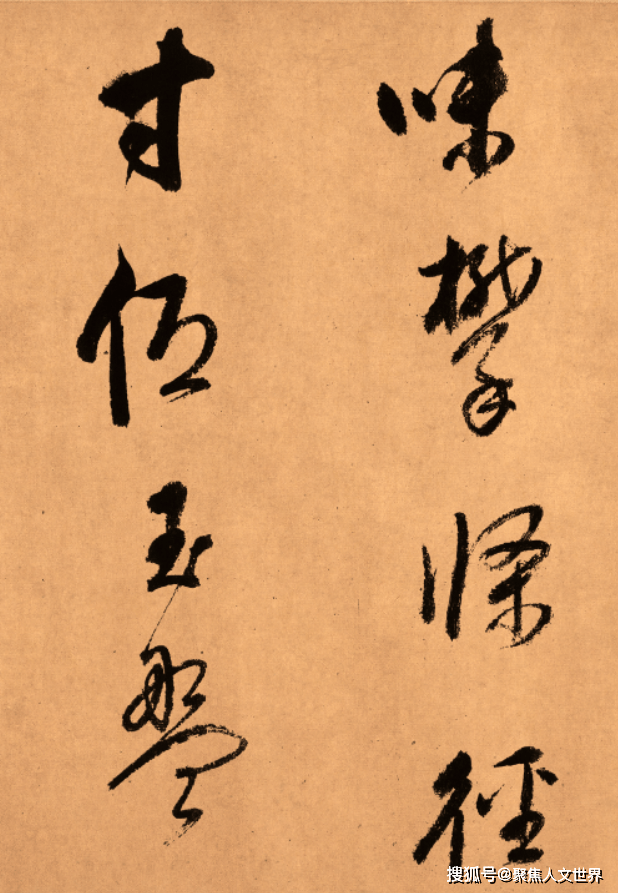 味攀條徑
寸玉盤
搜狐号@聚焦人文世界